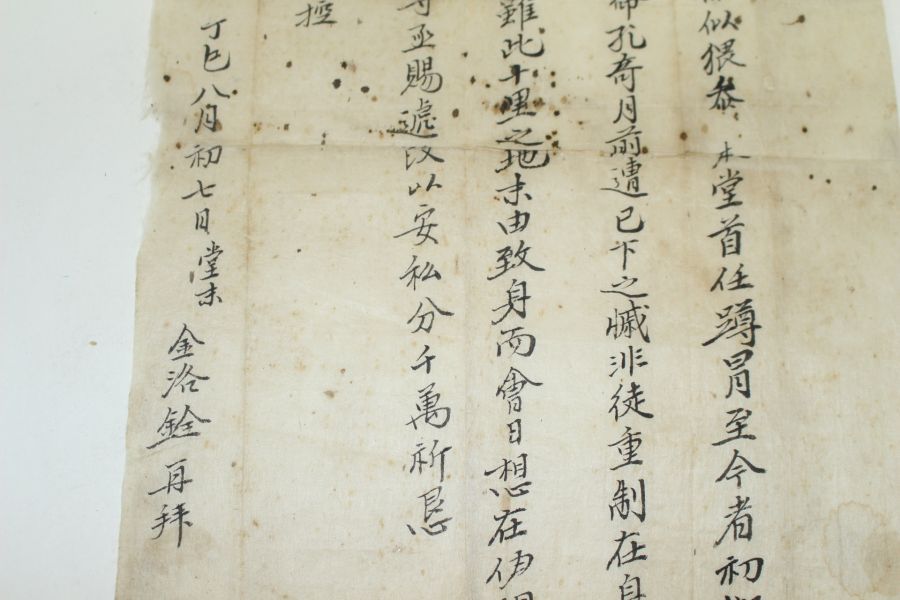 似猥叅 本堂首任蹲冒至今者初
孔奇月前遭已下之慽非徒重制在身
雖此十里之地末由致身而會日想在伊
亟賜遞改以安私分千萬祈恳
控
丁巳八月初七日堂末 金洛銓 再拜